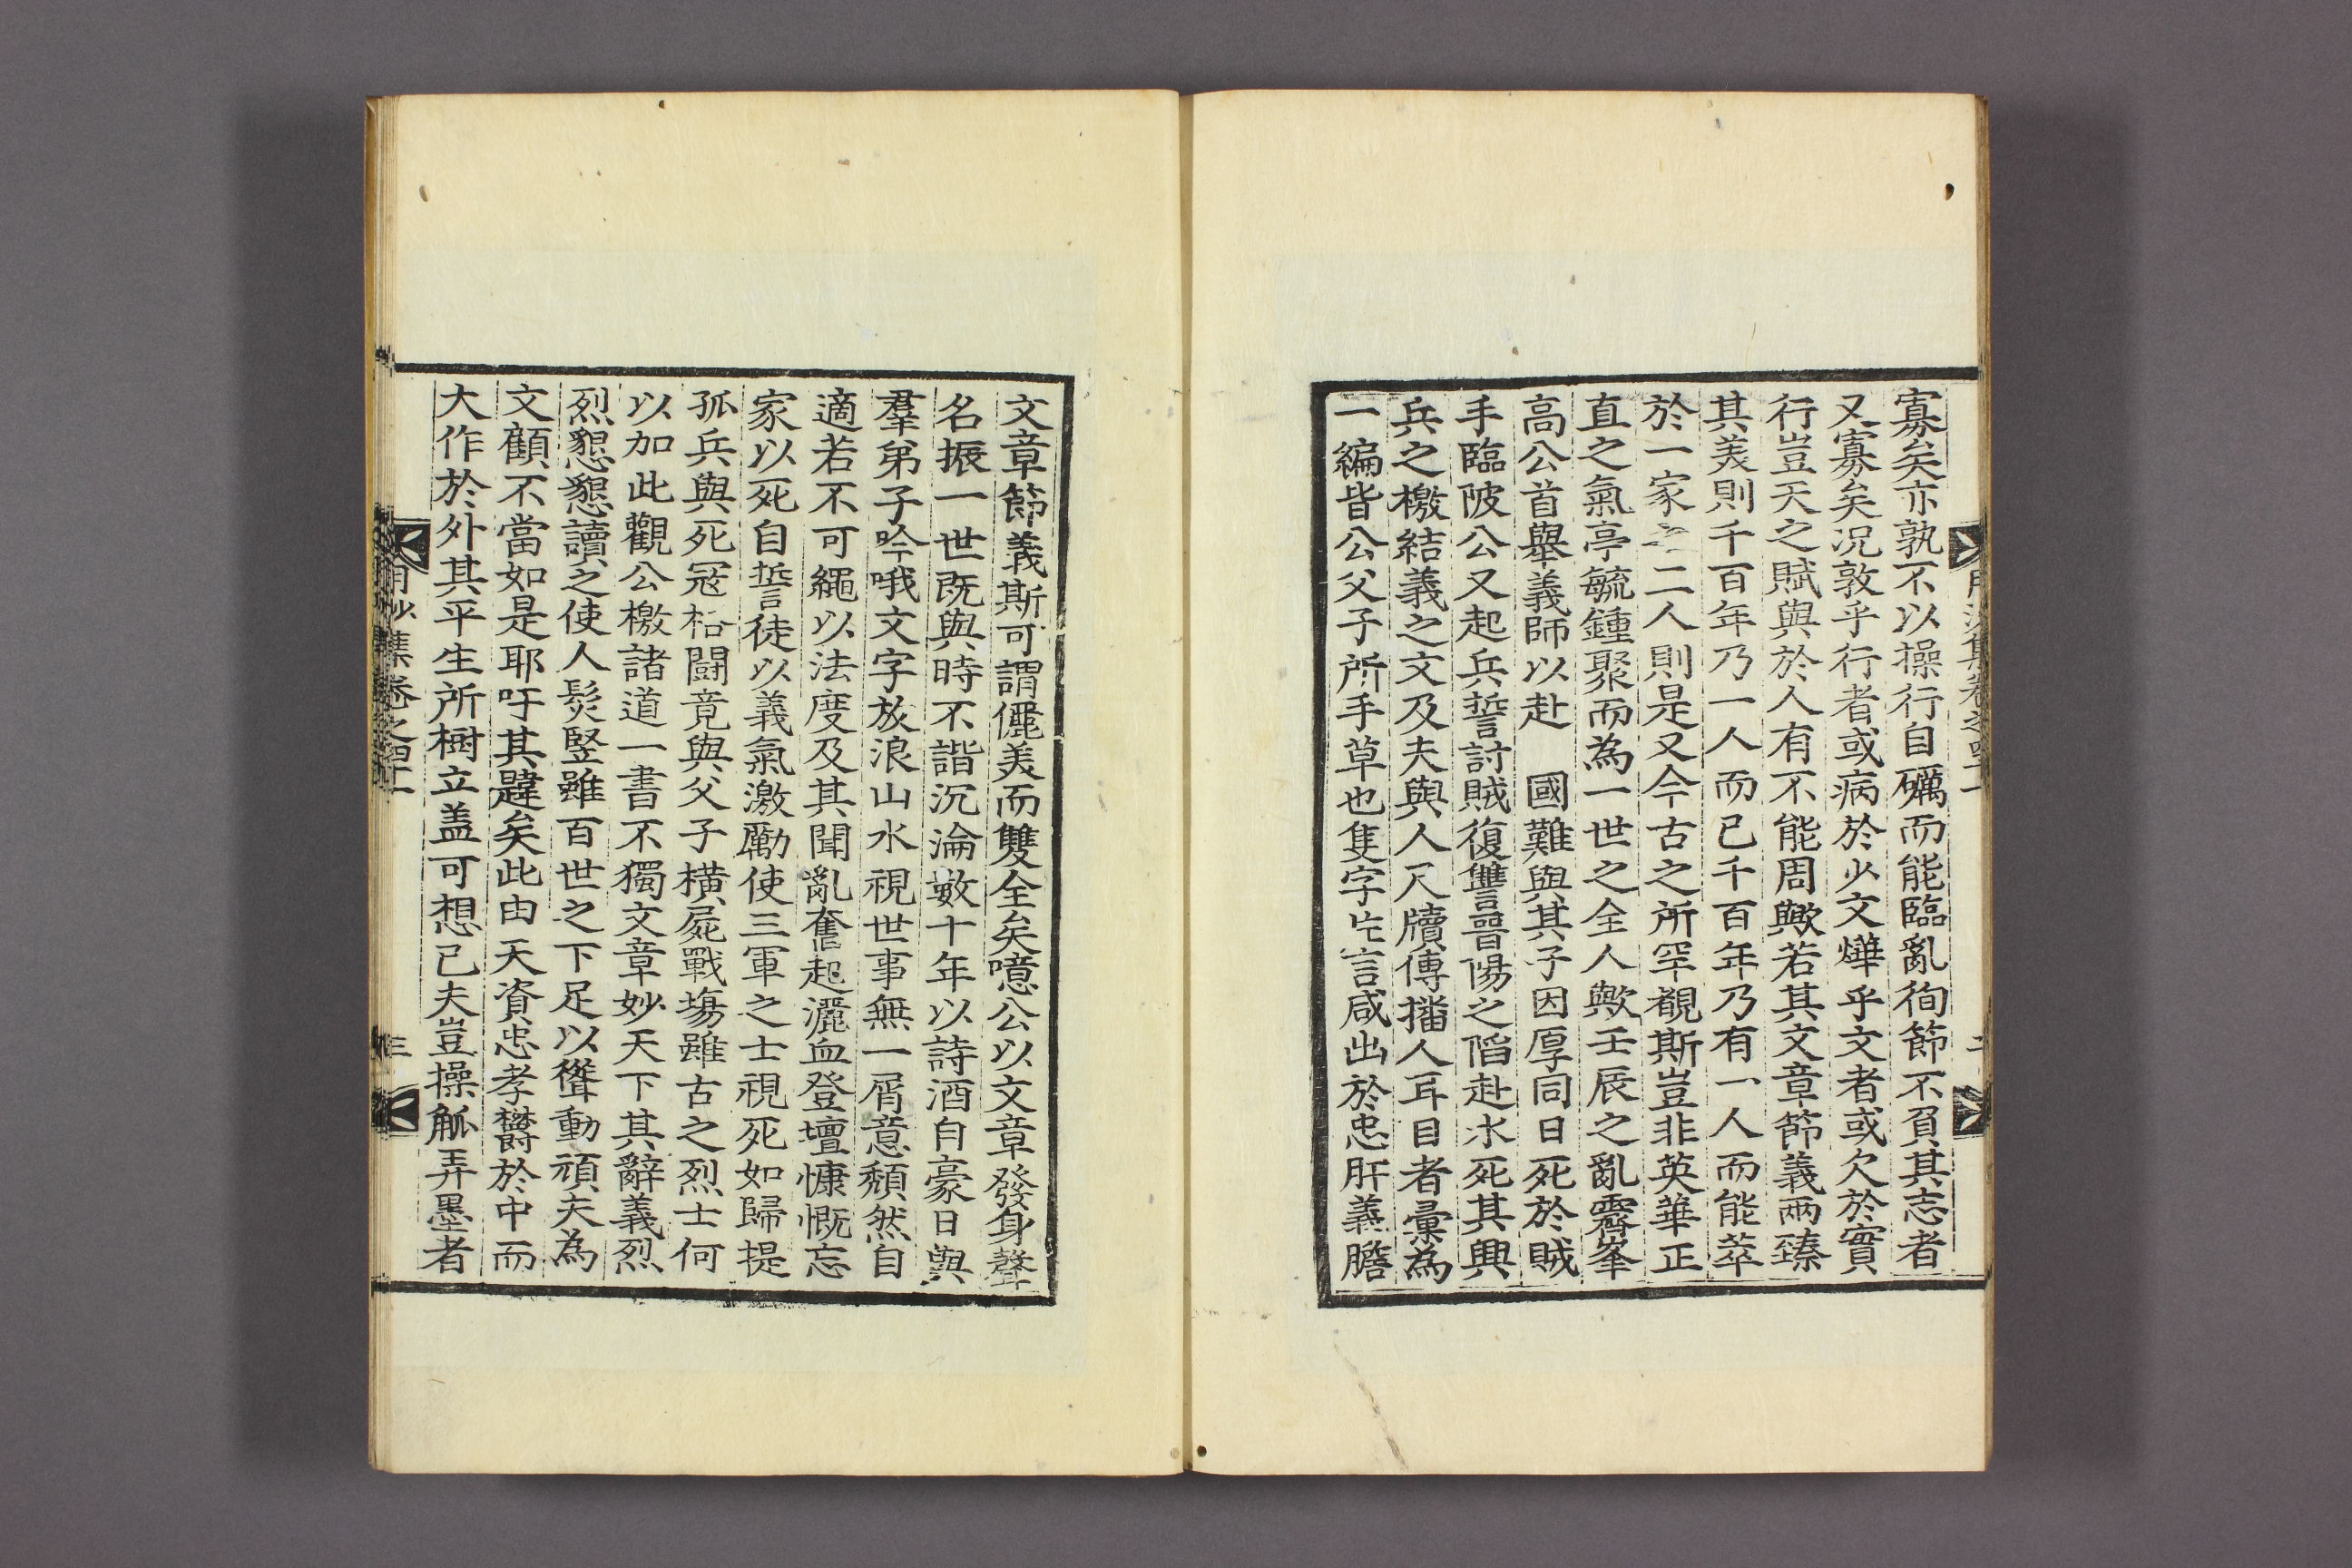 寡矣亦孰不以操行自礪而能臨亂徇節不負其志者
又寡矣况敦乎行者或病於少文燁乎文者或欠於實
行豈天之賦與於人有不能周歟若其文章節義兩臻
其美則千百年乃一人而已千百年乃有一人而能萃
於一家之二人則是又今古之所罕覩斯豈非英華正
直之氣亭毓鍾聚而為一世之全人歟壬辰之亂霽峯
高公首舉義師以赴 國難與其子因厚同日死於賊
手臨陂公又起兵誓討賊復讐晉陽之陷赴水死其興
兵之檄結義之文及夫與人尺牘傳播人耳目者彙為
一編皆公父子所手草也隻字片言咸出於忠肝義膽
文章節義斯可謂儷美而雙全矣噫公以文章發身聲
名振一世既與時不諧沉淪數十年以詩酒自豪日與
羣弟子吟哦文字放浪山水視世事無一屑意頹然自
適若不可繩以法度及其聞亂奮起灑血登壇慷慨忘
家以死自誓徒以義氣激勵使三軍之士視死如歸提
孤兵與死冦格闘竟與父子橫屍戰塲雖古之烈士何
以加此觀公檄諸道一書不獨文章妙天下其辭義烈
烈懇懇讀之使人髮竪雖百世之下足以聳動頑夫為
文顧不當如是耶吁其韙矣此由天資忠孝欝於中而
大作於外其平生所樹立盖可想已夫豈操觚弄墨者
月沙集卷之四十 三